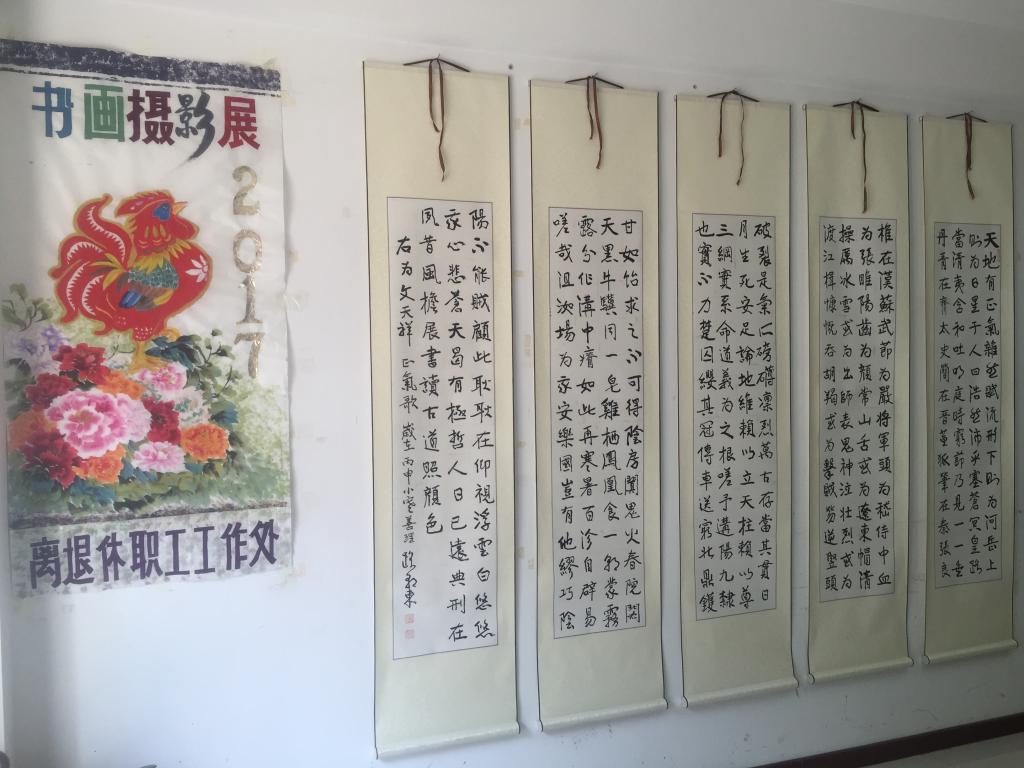 书画摄影展
2017
离退休职工工作处
天地有正氣雜然賦流形下則为河岳上
則为日星于人曰浩然沛乎塞蒼冥皇路
當清夷含和吐明庭時窮節乃見一一垂
丹青在齊太史簡在晉董狐筆在秦張良
椎在漢蘇武節为嚴將軍頭为嵇侍中血
为張睢陽齒为顏常山舌或为遼東帽清
操厲冰雪或为出師表鬼神泣壯烈或为
渡江楫慷慨吞胡羯或为擊賊笏逆豎頭
破裂是氣所磅礴凛烈萬古存當其貫日
月生死安足論地維賴以立天柱賴以尊
三綱實系命道義为之根嗟予遘陽九隸
也實不力楚囚纓其冠傳車送窮北鼎鑊
甘如飴求之不可得陰房闐鬼火春院閟
天黑牛驥同一皂雞栖鳳凰食一朝蒙霧
露分作溝中瘠如此再寒暑百沴自辟易
嗟哉沮洳場为我安樂國豈有他繆巧陰
陽不能賊顧此耿耿在仰視浮雲白悠悠
我心悲蒼天曷有極哲人日已遠典刑在
夙昔風檐展書讀古道照顏色
右为文天祥正氣歌 歲在丙申小雪